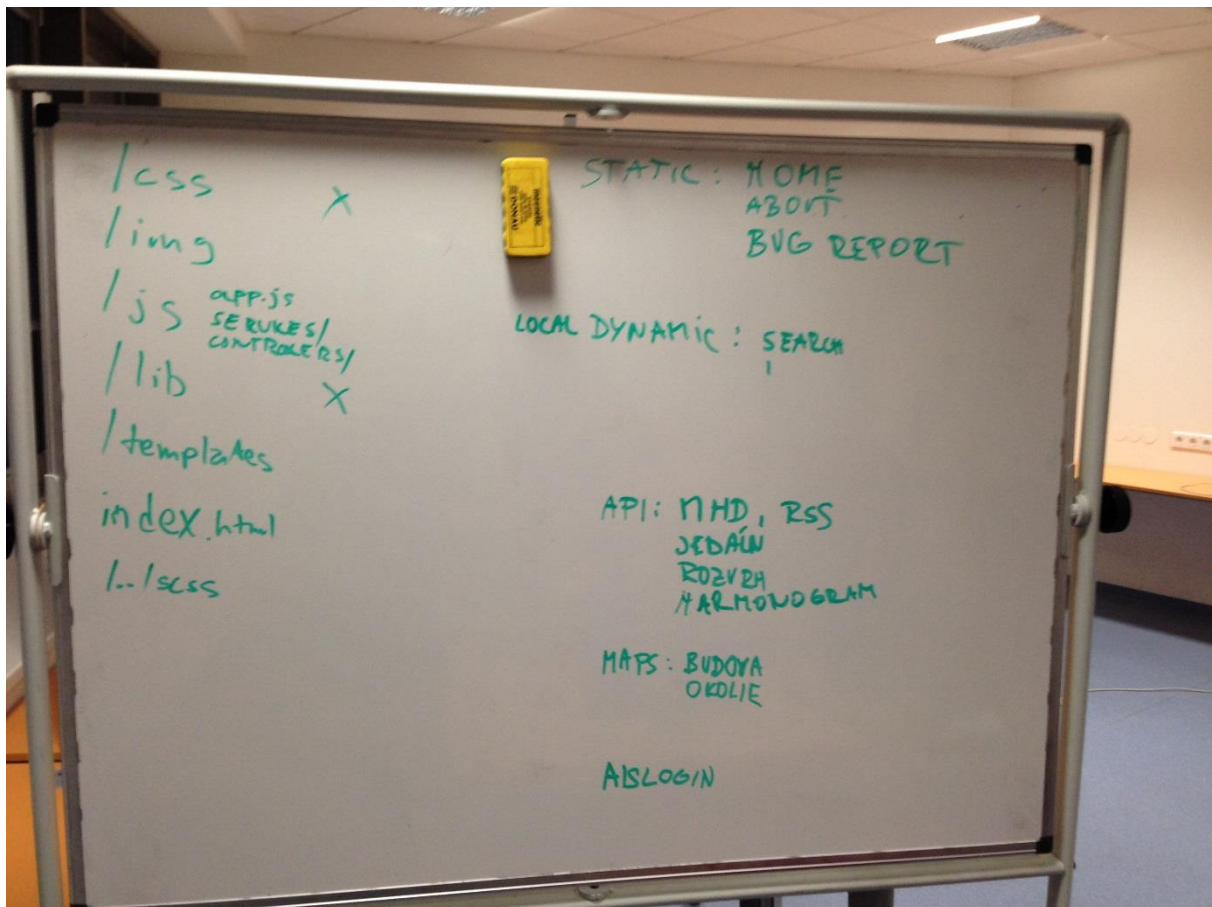 /css
X
/img
/js app.js
SERVICES/
CONTROLERS/
/lib X
/templates
index.html
/../scss
STATIC: HOME
ABOUT
BUG REPORT
LOCAL DYNAMIC: SEARCH
API: MHD, RSS
JEDÁLN
ROZVRH
HARMONOGRAM
MAPS: BUDOVA
OKOLIE
AISLOGIN